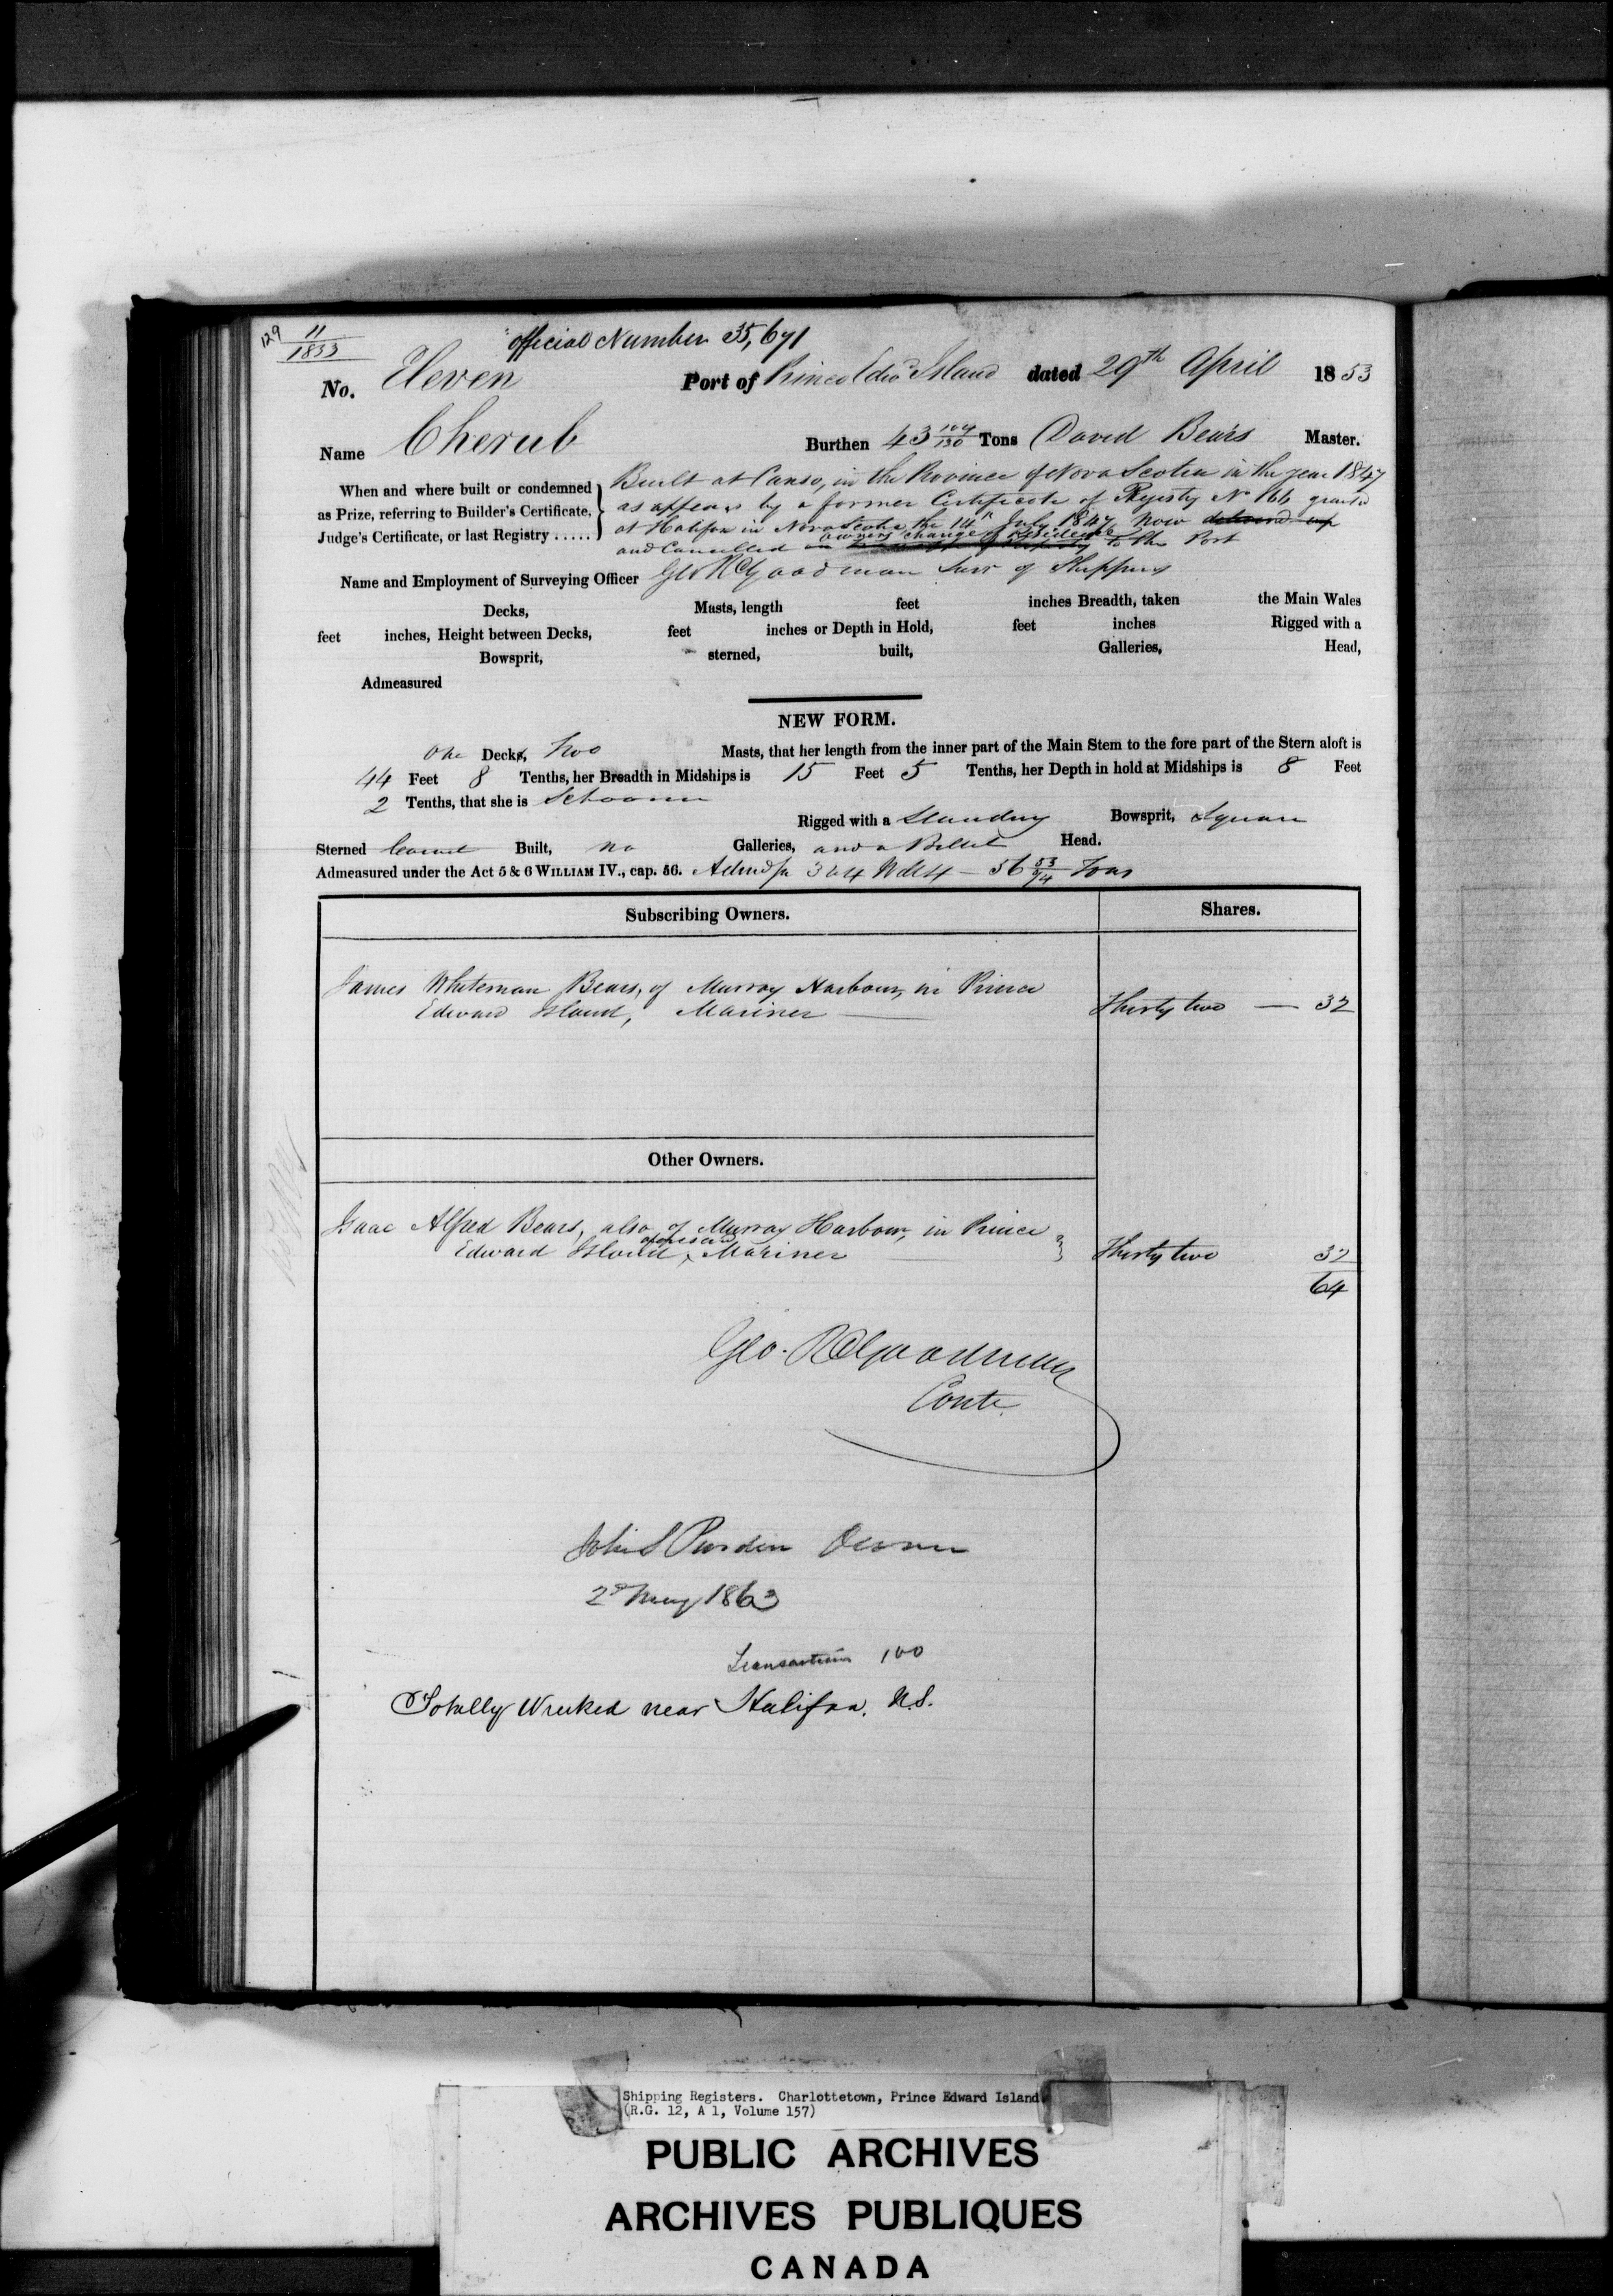 129 11
1853
official Number 35,671
No. Eleven Port of Prince Edwd Island dated 29th April 1853
Name Cherub Burthen 43 104/130 Tons David Bears Master.
When and where built or condemned as Prize, referring to Builder's Certificate, Judge's Certificate, or last Registry .....
Built at Canso, in the Province of Nova Scotia in the year 1847
as appears by a former Certificate of Registry No 166 granted
at Halifax in Nova Scotia the 14th July 1847 Now delivered up
owners change of residence
and Cancelled to this Port
Name and Employment of Surveying Officer Geo R Goodman Surv of Shipping
Decks, Masts, length feet inches Breadth, taken the Main Wales
feet inches, Height between Decks, feet inches or Depth in Hold, feet inches Rigged with a
Bowsprit, sterned, built, Galleries, Head,
Admeasured
NEW FORM.
One Decks, Two Masts, that her length from the inner part of the Main Stem to the fore part of the Stern aloft is
44 Feet 8 Tenths, her Breadth in Midships is 15 Feet 5 Tenths, her Depth in hold at Midships is 8 Feet
2 Tenths, that she is Schooner
Rigged with a Standing Bowsprit, Square
Sterned Carvel Built, no Galleries, and a Billet Head.
Admeasured under the Act 5 & 6 WILLIAM IV., cap. 56. 56 53/94 Tons
Subscribing Owners. Shares.
James Whiteman Bears, of Murray Harbour, in Prince
Edward Island, Mariner Thirty two — 32
Other Owners.
Isaac Alfred Bears, also of Murray Harbour, in Prince
aforesaid
Edward Island, Mariner Thirty two 32
64
Geo. R Goodman
Contr.
John S Purden Owner
2d May 1863
Transaction 100
Totally Wrecked near Halifax. N.S.
Shipping Registers. Charlottetown, Prince Edward Island
(R.G. 12, A 1, Volume 157)
PUBLIC ARCHIVES
ARCHIVES PUBLIQUES
CANADA